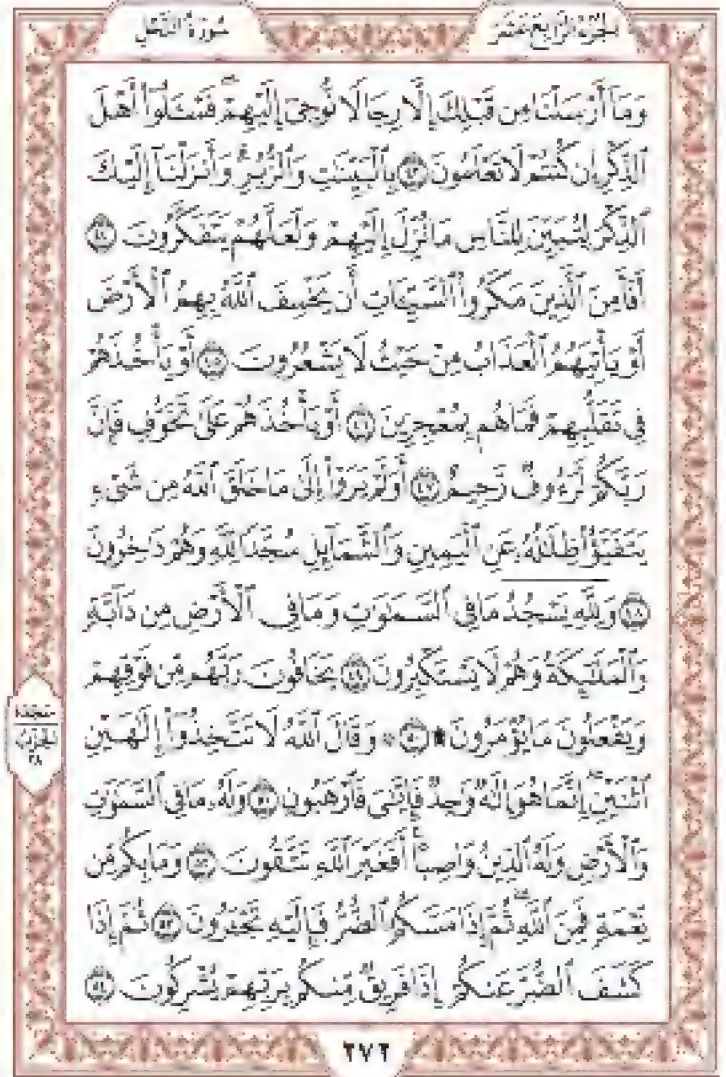 سورة النحل
الجزء الرابع عشر
وَمَا أَرْسَلْنَا مِن قَبْلِكَ إِلَّا رِجَالًا نُّوحِي إِلَيْهِمْ ۚ فَسْـَٔلُوٓا۟ أَهْلَ
ٱلذِّكْرِ إِن كُنتُمْ لَا تَعْلَمُونَ ٤٣ بِٱلْبَيِّنَٰتِ وَٱلزُّبُرِ ۗ وَأَنزَلْنَآ إِلَيْكَ
ٱلذِّكْرَ لِتُبَيِّنَ لِلنَّاسِ مَا نُزِّلَ إِلَيْهِمْ وَلَعَلَّهُمْ يَتَفَكَّرُونَ ٤٤
أَفَأَمِنَ ٱلَّذِينَ مَكَرُوا۟ ٱلسَّيِّـَٔاتِ أَن يَخْسِفَ ٱللَّهُ بِهِمُ ٱلْأَرْضَ
أَوْ يَأْتِيَهُمُ ٱلْعَذَابُ مِنْ حَيْثُ لَا يَشْعُرُونَ ٤٥ أَوْ يَأْخُذَهُمْ
فِى تَقَلُّبِهِمْ فَمَا هُم بِمُعْجِزِينَ ٤٦ أَوْ يَأْخُذَهُمْ عَلَىٰ تَخَوُّفٍ فَإِنَّ
رَبَّكُمْ لَرَءُوفٌ رَّحِيمٌ ٤٧ أَوَلَمْ يَرَوْا۟ إِلَىٰ مَا خَلَقَ ٱللَّهُ مِن شَىْءٍ
يَتَفَيَّؤُا۟ ظِلَٰلُهُۥ عَنِ ٱلْيَمِينِ وَٱلشَّمَآئِلِ سُجَّدًا لِّلَّهِ وَهُمْ دَٰخِرُونَ
٤٨ وَلِلَّهِ يَسْجُدُ مَا فِى ٱلسَّمَٰوَٰتِ وَمَا فِى ٱلْأَرْضِ مِن دَآبَّةٍ
وَٱلْمَلَٰٓئِكَةُ وَهُمْ لَا يَسْتَكْبِرُونَ ٤٩ يَخَافُونَ رَبَّهُم مِّن فَوْقِهِمْ
وَيَفْعَلُونَ مَا يُؤْمَرُونَ ۩ ٥٠ ۞ وَقَالَ ٱللَّهُ لَا تَتَّخِذُوٓا۟ إِلَٰهَيْنِ
ٱثْنَيْنِ ۖ إِنَّمَا هُوَ إِلَٰهٌ وَٰحِدٌ ۖ فَإِيَّٰىَ فَٱرْهَبُونِ ٥١ وَلَهُۥ مَا فِى ٱلسَّمَٰوَٰتِ
وَٱلْأَرْضِ وَلَهُ ٱلدِّينُ وَاصِبًا ۚ أَفَغَيْرَ ٱللَّهِ تَتَّقُونَ ٥٢ وَمَا بِكُم مِّن
نِّعْمَةٍ فَمِنَ ٱللَّهِ ۖ ثُمَّ إِذَا مَسَّكُمُ ٱلضُّرُّ فَإِلَيْهِ تَجْـَٔرُونَ ٥٣ ثُمَّ إِذَا
كَشَفَ ٱلضُّرَّ عَنكُمْ إِذَا فَرِيقٌ مِّنكُم بِرَبِّهِمْ يُشْرِكُونَ ٥٤
سجدة
الحزب
٢٨
٢٧٢